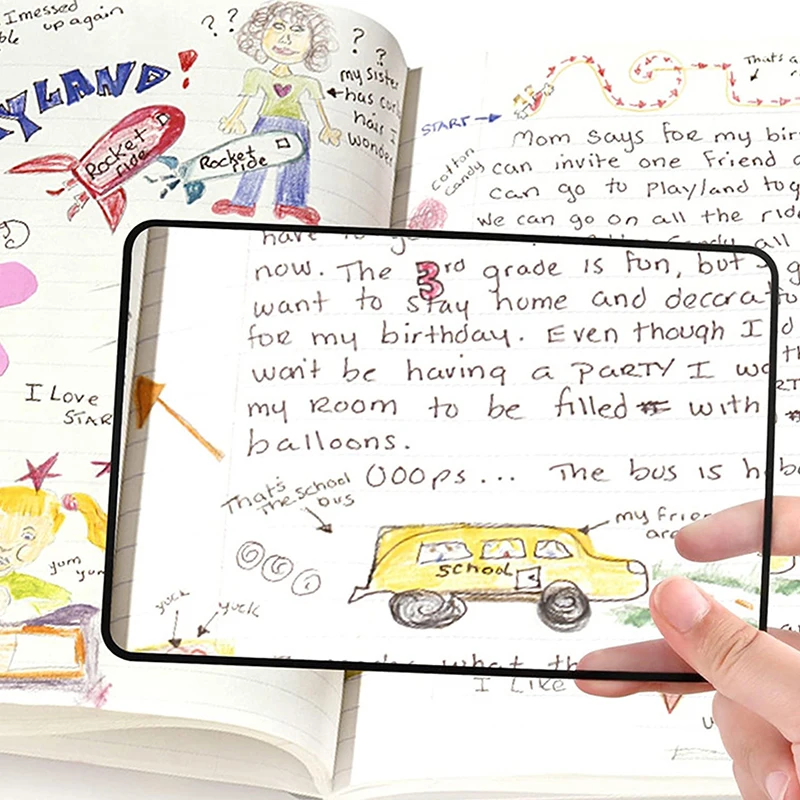 I messed
up again
? ?
? ?
YLAND!
Rocket
ride
Rocket
ride
my sister
has
hair I
wonder
I Love
STAR
yum
yum
START
cotton
candy
That's a
Mom says for my
can invite one friend
can go to Playland
we can go on all the
all
now. The 3rd grade is fun, but
want to stay home and
for my birthday. Even though I
won't be having a PARTY I
my Room to be filled with
balloons.
OOOps... The bus is
That's
the school
bus
my
SCHOOL
yuck
yuck
what
I Like